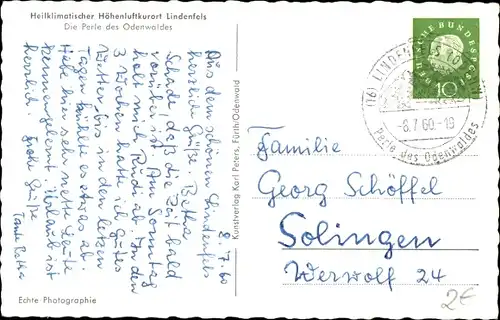 Heilklimatischer Höhenluftkurort Lindenfels
Die Perle des Odenwaldes
8.7.60
Aus dem schönen Lindenfels
herzliche Grüße. Betha
Schade daß die Zeit bald
vorüber ist. Am Sonntag
holt mich Rud ab. In den
3 Wochen hatte ich gutes
Wetter bis in den letzten
Tagen kühlte es etwas ab.
Habe hier sehr nette Leute
kennengelernt. Urlaub ist
herrlich. Frohe Grüße
Tante Betha
Echte Photographie
Kunstverlag Karl Peters, Fürth/Odenwald
DEUTSCHE BUNDESPOST
10
(16) LINDENFELS (ODENW)
-8.7.60-19
Perle des Odenwaldes
Familie
Georg Schöffel
Solingen
Werwolf 24
2€